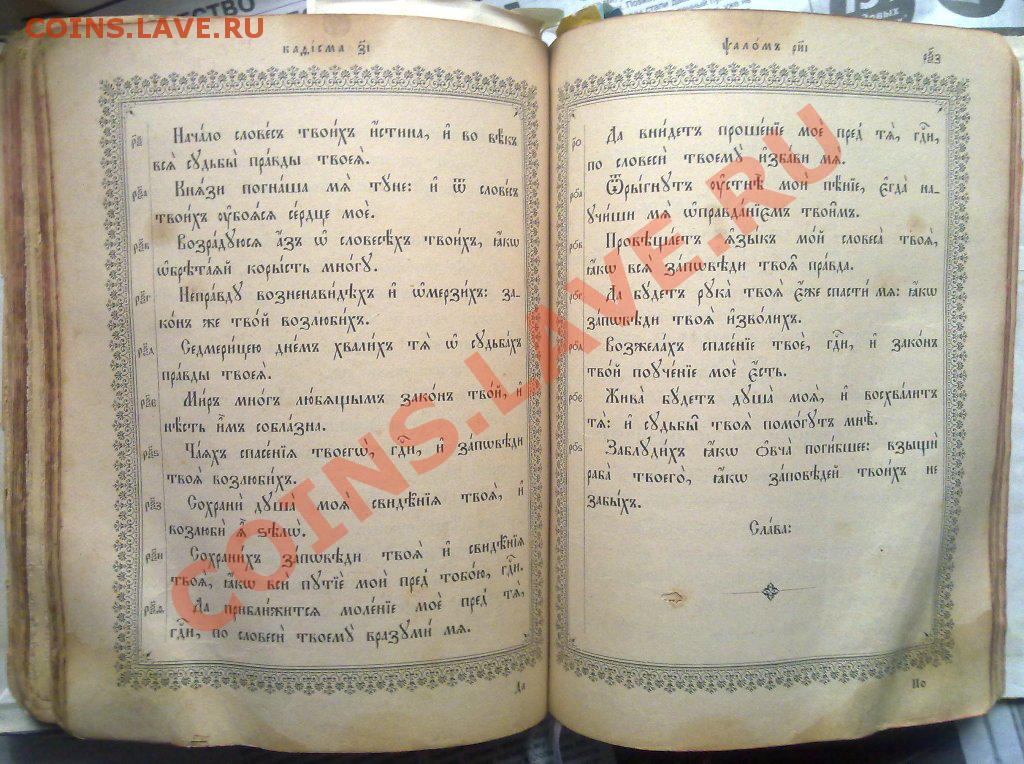 COINS.LAVE.RU
каѳі́сма з҃і
Нача́ло слове́съ твои́хъ и҆́стина, и҆ во вѣ́къ
всѧ̑ судьбы̑ пра́вды твоеѧ̀.
Кнѧ́зи погна́ша мѧ̀ тꙋ́не: и҆ ѿ слове́съ
твои́хъ ᲂу҆боѧ́сѧ се́рдце моѐ.
Возра́дꙋюсѧ а҆́зъ ѡ҆ словесѣ́хъ твои́хъ, ꙗ҆́кѡ
ѡ҆брѣта́ѧй коры́сть мно́гꙋ.
Непра́вдꙋ возненави́дѣхъ и҆ ѡ҆мерзи́хъ: за-
ко́нъ же тво́й возлюби́хъ.
Седмери́цею дне́мъ хвали́хъ тѧ̀ ѡ҆ судьба́хъ
пра́вды твоеѧ̀.
Ми́ръ мно́гъ лю́бѧщымъ зако́нъ тво́й, и҆
нѣ́сть и҆̀мъ собла́зна.
Ча́ѧхъ спасе́нїѧ твоегѡ̀, гдⷭ҇и, и҆ за́пѡвѣди
твоѧ̑ возлюби́хъ.
Сохранѝ дꙋша̀ моѧ̀ свидѣ̑нїѧ твоѧ̑, и҆
возлюбѝ ѧ҆̀ ѕѣлѡ̀.
Сохрани́хъ за́пѡвѣди твоѧ̑ и҆ свидѣ̑нїѧ
твоѧ̑, ꙗ҆́кѡ всѝ пꙋтїѐ моѝ пред̾ тобо́ю, гдⷭ҇и.
Да прибли́житсѧ моле́нїе моѐ пред̾ тѧ̀,
гдⷭ҇и, по словесѝ твоемꙋ̀ вразꙋмѝ мѧ̀.
Да
ѱало́мъ рн҃і
рѯ҃з
Да вни́детъ проше́нїе моѐ пред̾ тѧ̀, гдⷭ҇и,
по словесѝ твоемꙋ̀ и҆зба́ви мѧ̀.
Ѿры́гнꙋтъ ᲂу҆стнѣ̀ моѝ пѣ́нїе, є҆гда̀ на-
ꙋчи́ши мѧ̀ ѡ҆правда́нїємъ твои̑мъ.
Провѣща́етъ ѧ҆зы́къ мо́й словеса̀ твоѧ̑,
ꙗ҆́кѡ всѧ̑ за́пѡвѣди твоѧ̑ пра́вда.
Да бꙋ́детъ рꙋка̀ твоѧ̀ є҆́же спастѝ мѧ̀: ꙗ҆́кѡ
за́пѡвѣди твоѧ̑ и҆зво́лихъ.
Возжела́хъ спасе́нїе твоѐ, гдⷭ҇и, и҆ зако́нъ
тво́й поꙋче́нїе моѐ є҆́сть.
Жива̀ бꙋ́детъ дꙋша̀ моѧ̀, и҆ восхва́литъ
тѧ̀: и҆ сꙋдьбы̑ твоѧ̑ помо́гꙋтъ мнѣ̀.
Заблꙋди́хъ ꙗ҆́кѡ ѻ҆вча̀ поги́бшее: взыщѝ
раба̀ твоего̀, ꙗ҆́кѡ за́повѣдей твои́хъ не
забы́хъ.
Сла́ва:
По
COINS.LAVE.RU